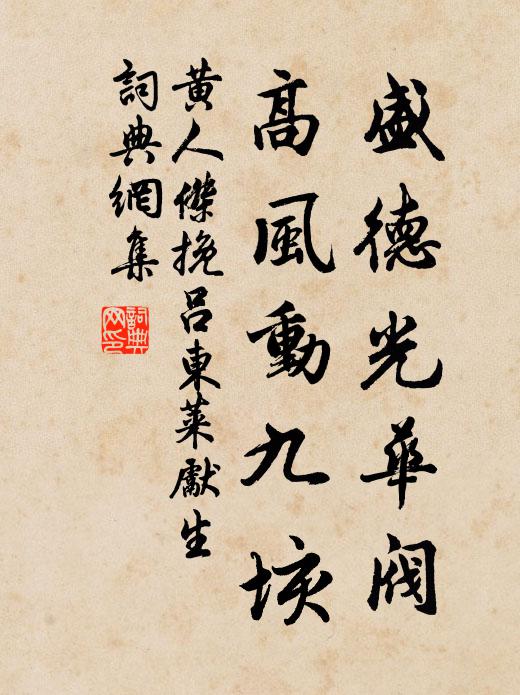 盛德光華閥
高風動九垓
黃人傑挽呂東萊獻生
詞典網集
詞典網印